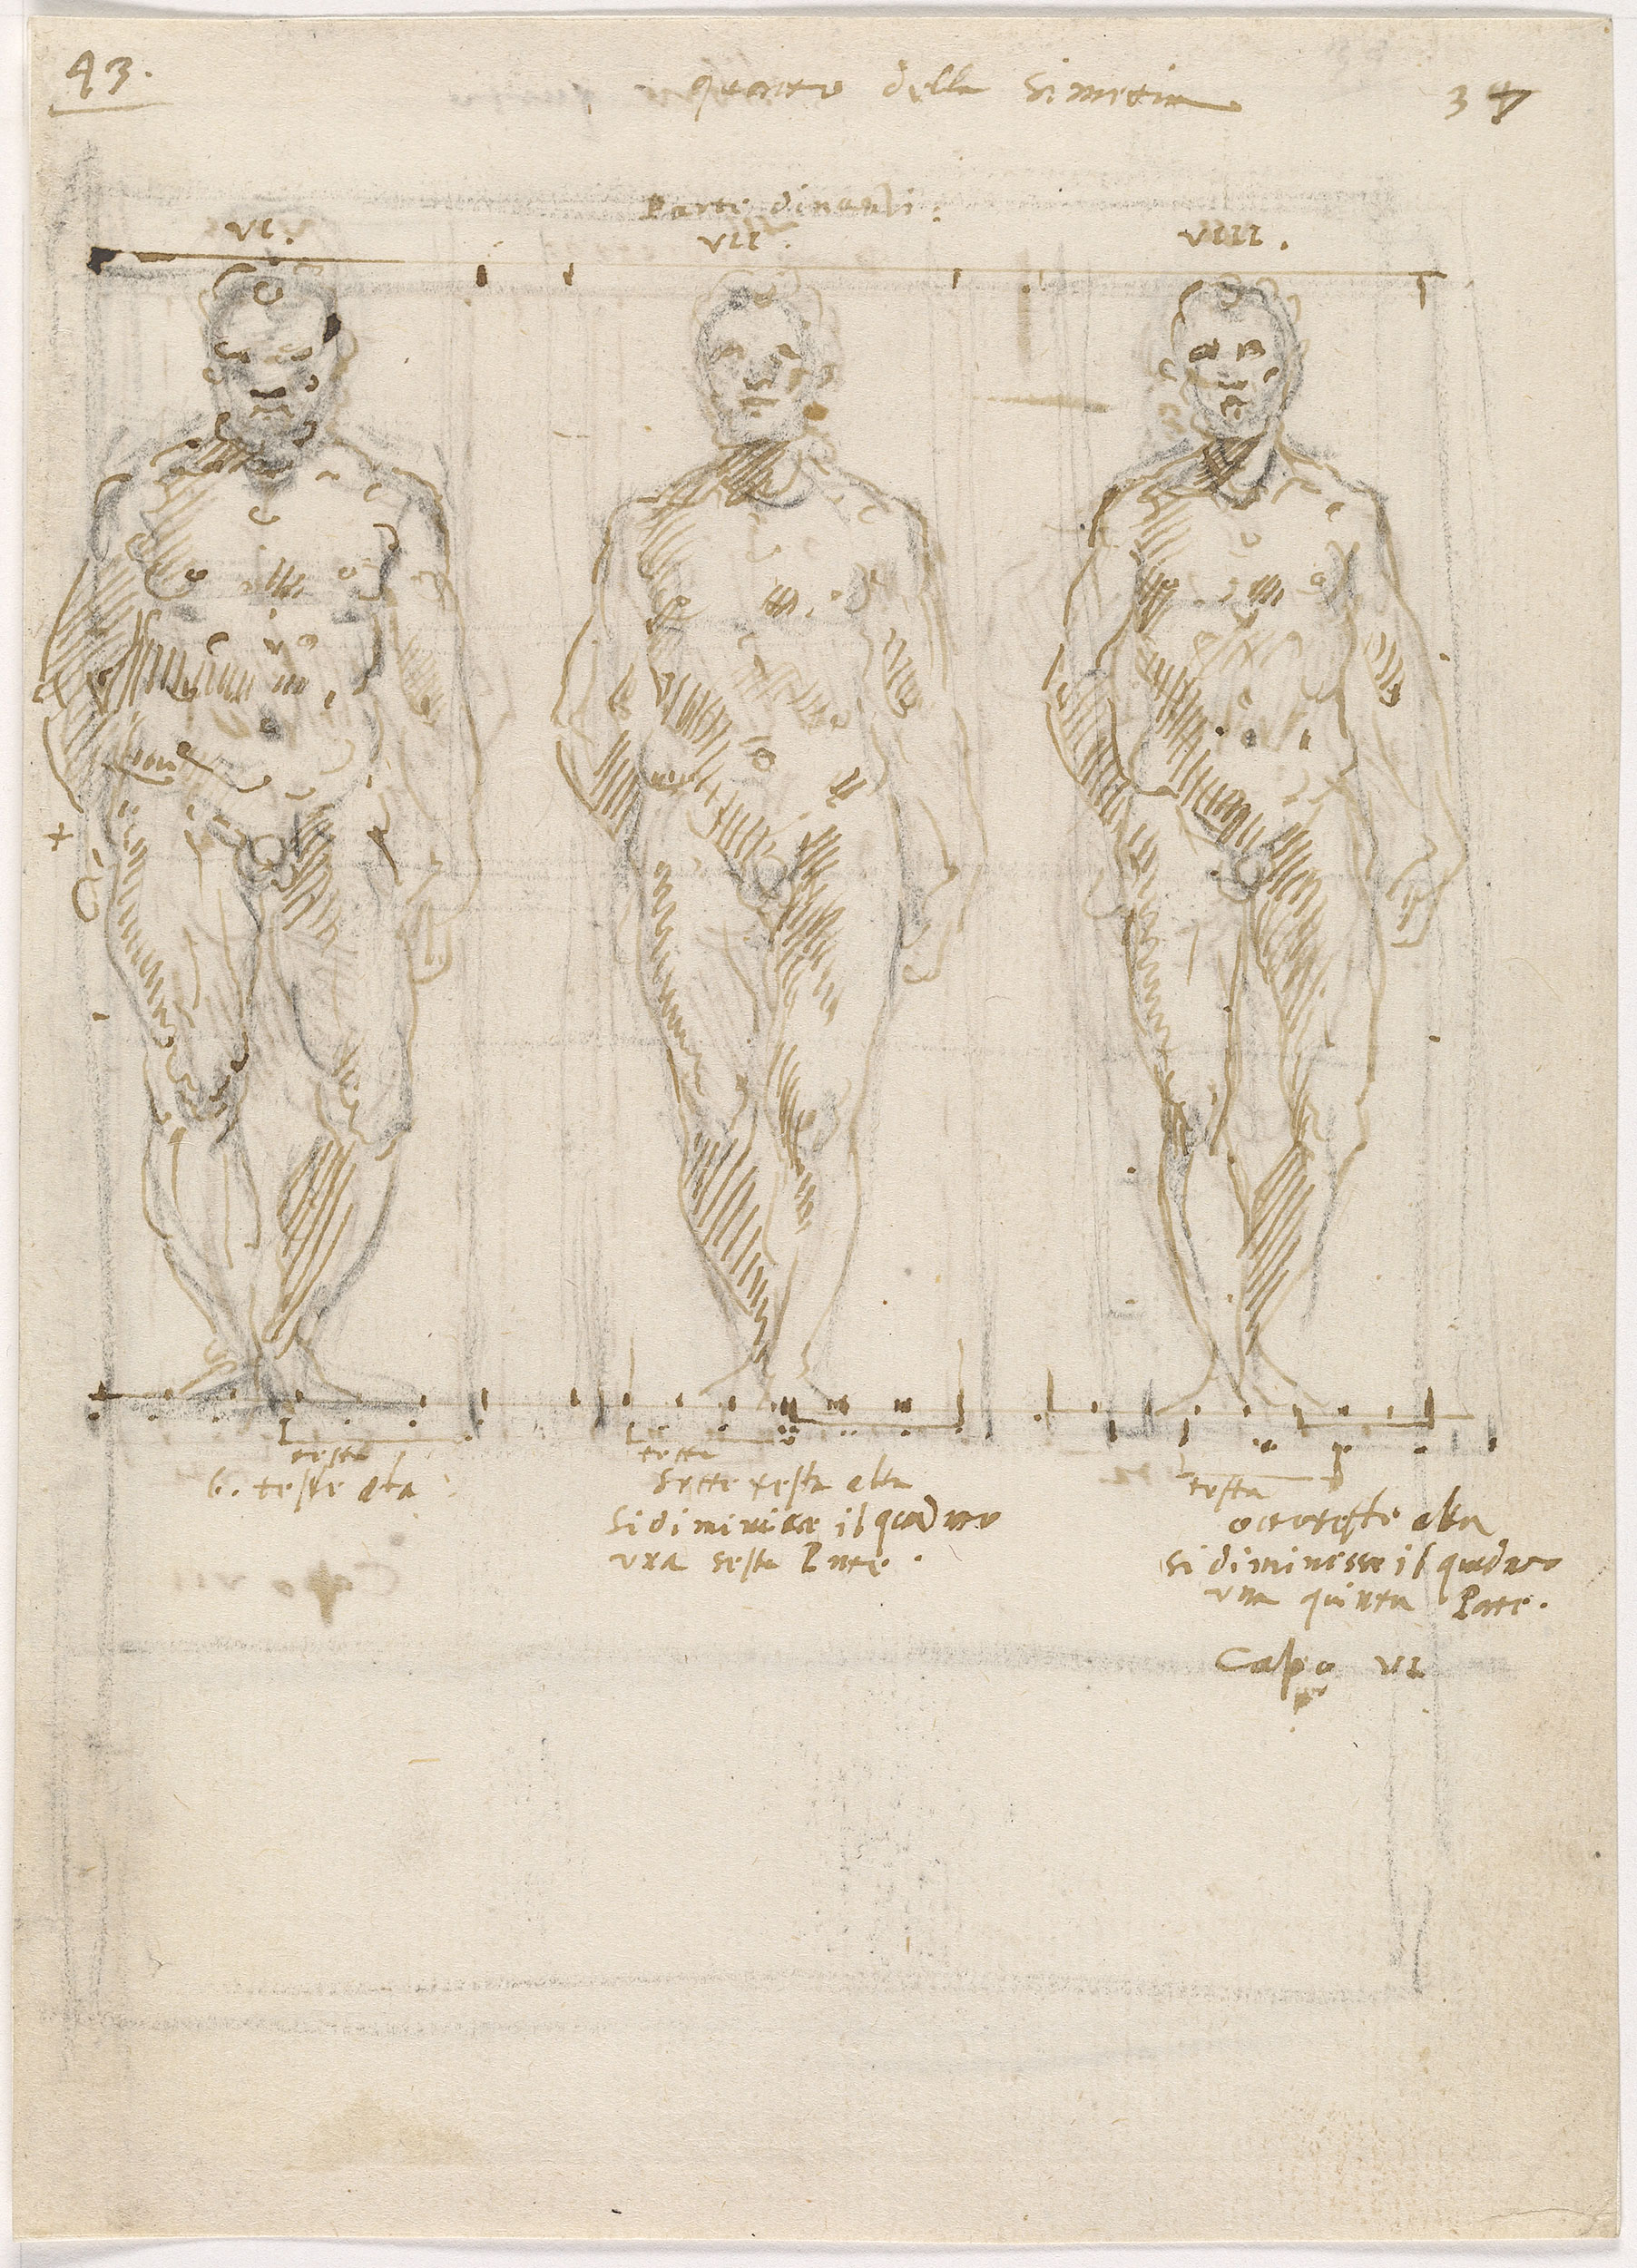 43.
quarto della simetria
37
Parte dinanzi.
VI.
VII.
VIII.
testa
6. teste alta
testa
Sette teste alta
si diminuisce il quadrato
una sesta Parte.
testa
otto teste alta
si diminuisse il quadrato
una quinta Parte.
Capo VI